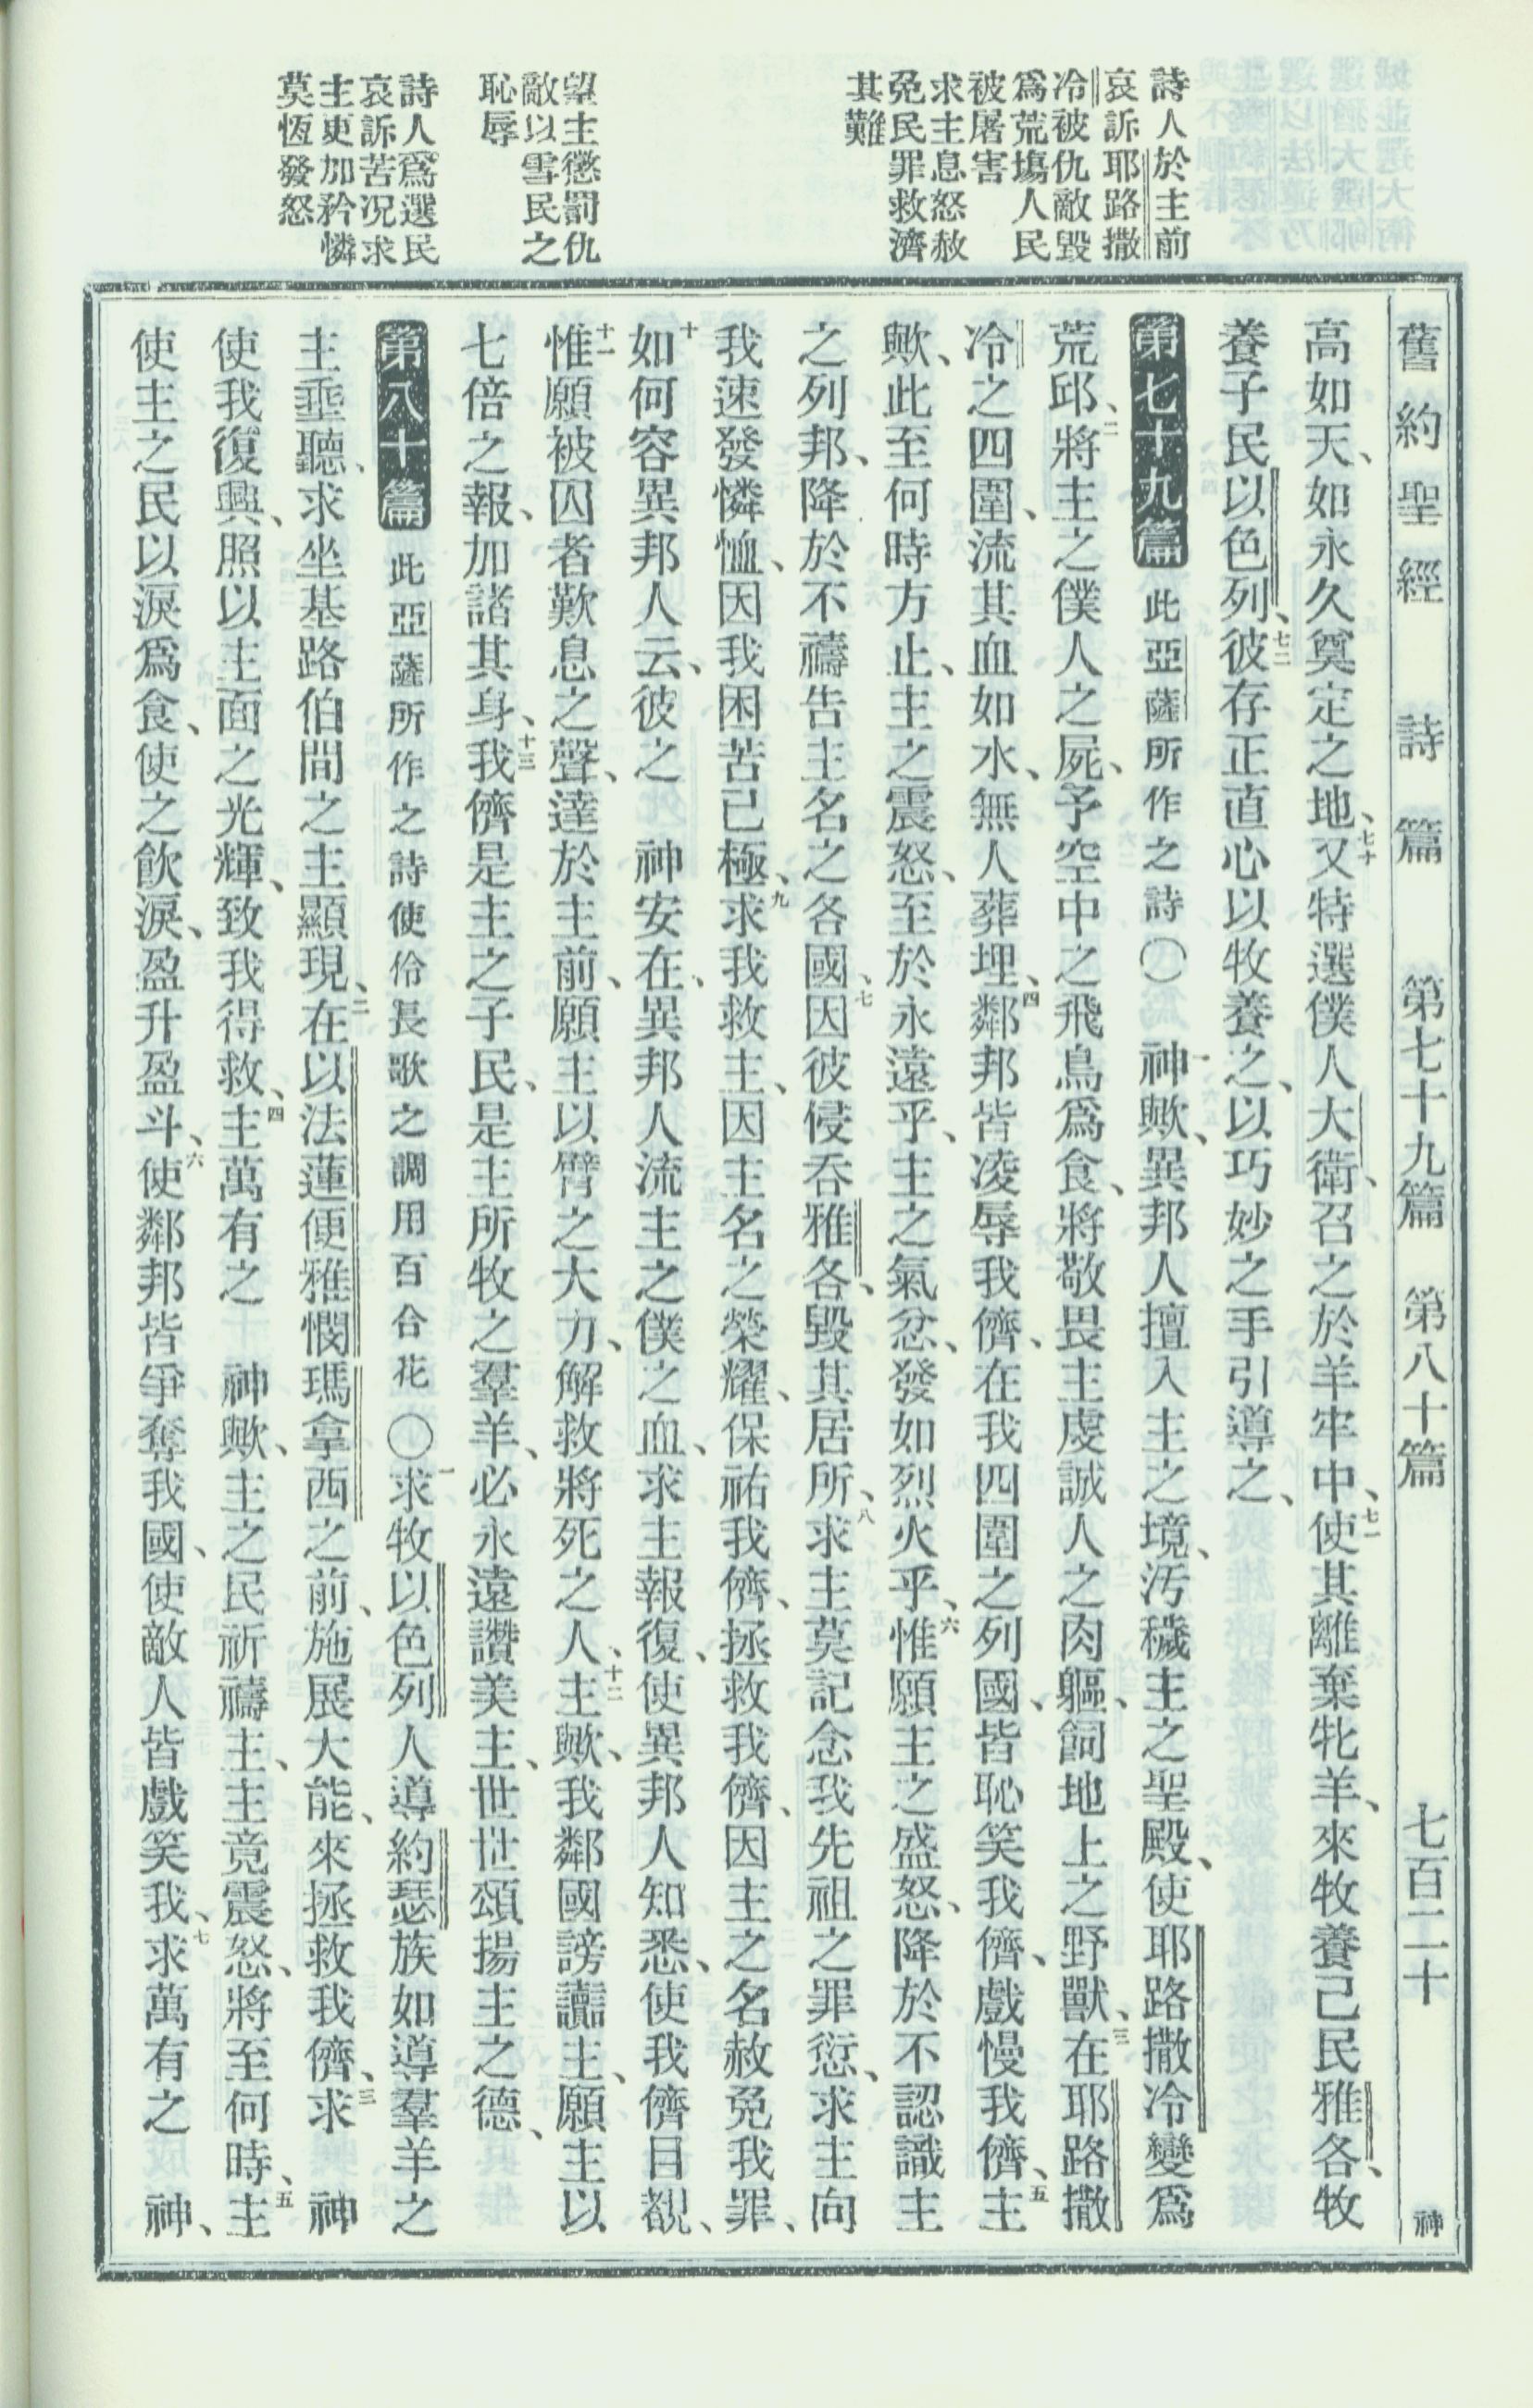 舊約聖經 詩篇 第七十九篇 第八十篇 七百二十 神
詩人於主前
哀訴耶路撒
冷被仇敵毀
爲荒塲人民
被屠害
求主息怒赦
免民罪救濟
其難
望主懲罰仇
敵以雪民之
恥辱
詩人爲選民
哀訴苦況求
主更加矜憐
莫恆發怒
高如天、如永久奠定之地、七十又特選僕人大衛、召之於羊牢中、七一使其離棄牝羊、來牧養己民雅各、牧
養子民以色列、七二彼存正直心以牧養之、以巧妙之手引導之、
第七十九篇 此亞薩所作之詩〇 一神歟、異邦人擅入主之境、汚穢主之聖殿、使耶路撒冷變爲
荒邱、二將主之僕人之屍、予空中之飛鳥爲食、將敬畏主虔誠人之肉軀、飼地上之野獸、三在耶路撒
冷之四圍、流其血如水、無人葬埋、四鄰邦皆凌辱我儕、在我四圍之列國、皆恥笑我儕、戲慢我儕、五主
歟、此至何時方止、主之震怒、至於永遠乎、主之氣忿、發如烈火乎、六惟願主之盛怒、降於不認識主
之列邦、降於不禱告主名之各國、七因彼侵吞雅各、毀其居所、八求主莫記念我先祖之罪愆、求主向
我速發憐恤、因我困苦已極、九求我救主、因主名之榮耀、保祐我儕、拯救我儕、因主之名赦免我罪、
十如何容異邦人云、彼之 神安在、異邦人流主之僕之血、求主報復、使異邦人知悉、使我儕目覩、
十一惟願被囚者歎息之聲、達於主前、願主以臂之大力、解救將死之人、十二主歟、我鄰國謗讟主、願主以
七倍之報、加諸其身、十三我儕是主之子民、是主所牧之羣羊、必永遠讚美主、世世頌揚主之德、
第八十篇 此亞薩所作之詩使伶長歌之調用百合花〇一求牧以色列人導約瑟族如導羣羊之
主垂聽、求坐基路伯間之主顯現、二在以法蓮便雅憫瑪拿西之前、施展大能、來拯救我儕、三求 神
使我復興、照以主面之光輝、致我得救、四主萬有之 神歟、主之民祈禱主、主竟震怒、將至何時、五主
使主之民以淚爲食、使之飮淚、盈升盈斗、六使鄰邦皆爭奪我國、使敵人皆戲笑我、七求萬有之 神、